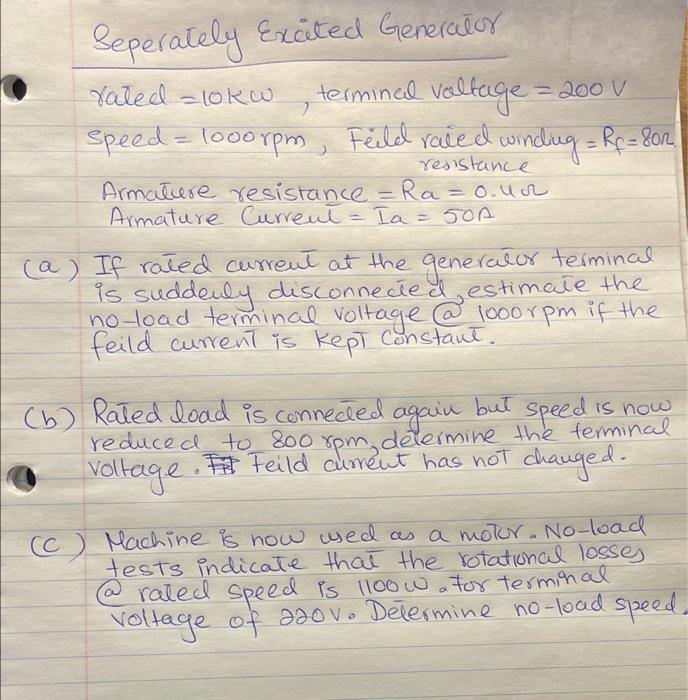 Seperately Excited Generator
rated = 10kw , terminal voltage = 200 V
Speed = 1000rpm , Feild rated winding = Rf = 80Ω
resistance
Armature resistance = Ra = 0.4Ω
Armature Current = Ia = 50A
(a) If rated current at the generator terminal
is suddenly disconnected, estimate the
no-load terminal voltage @ 1000rpm if the
feild current is kept constant.
(b) Rated load is connected again but speed is now
reduced to 800 rpm, determine the terminal
voltage. Feild current has not changed.
(c) Machine is now used as a motor. No-load
tests indicate that the rotational losses
@ rated speed is 1100w. for terminal
voltage of 220v. Determine no-load speed.